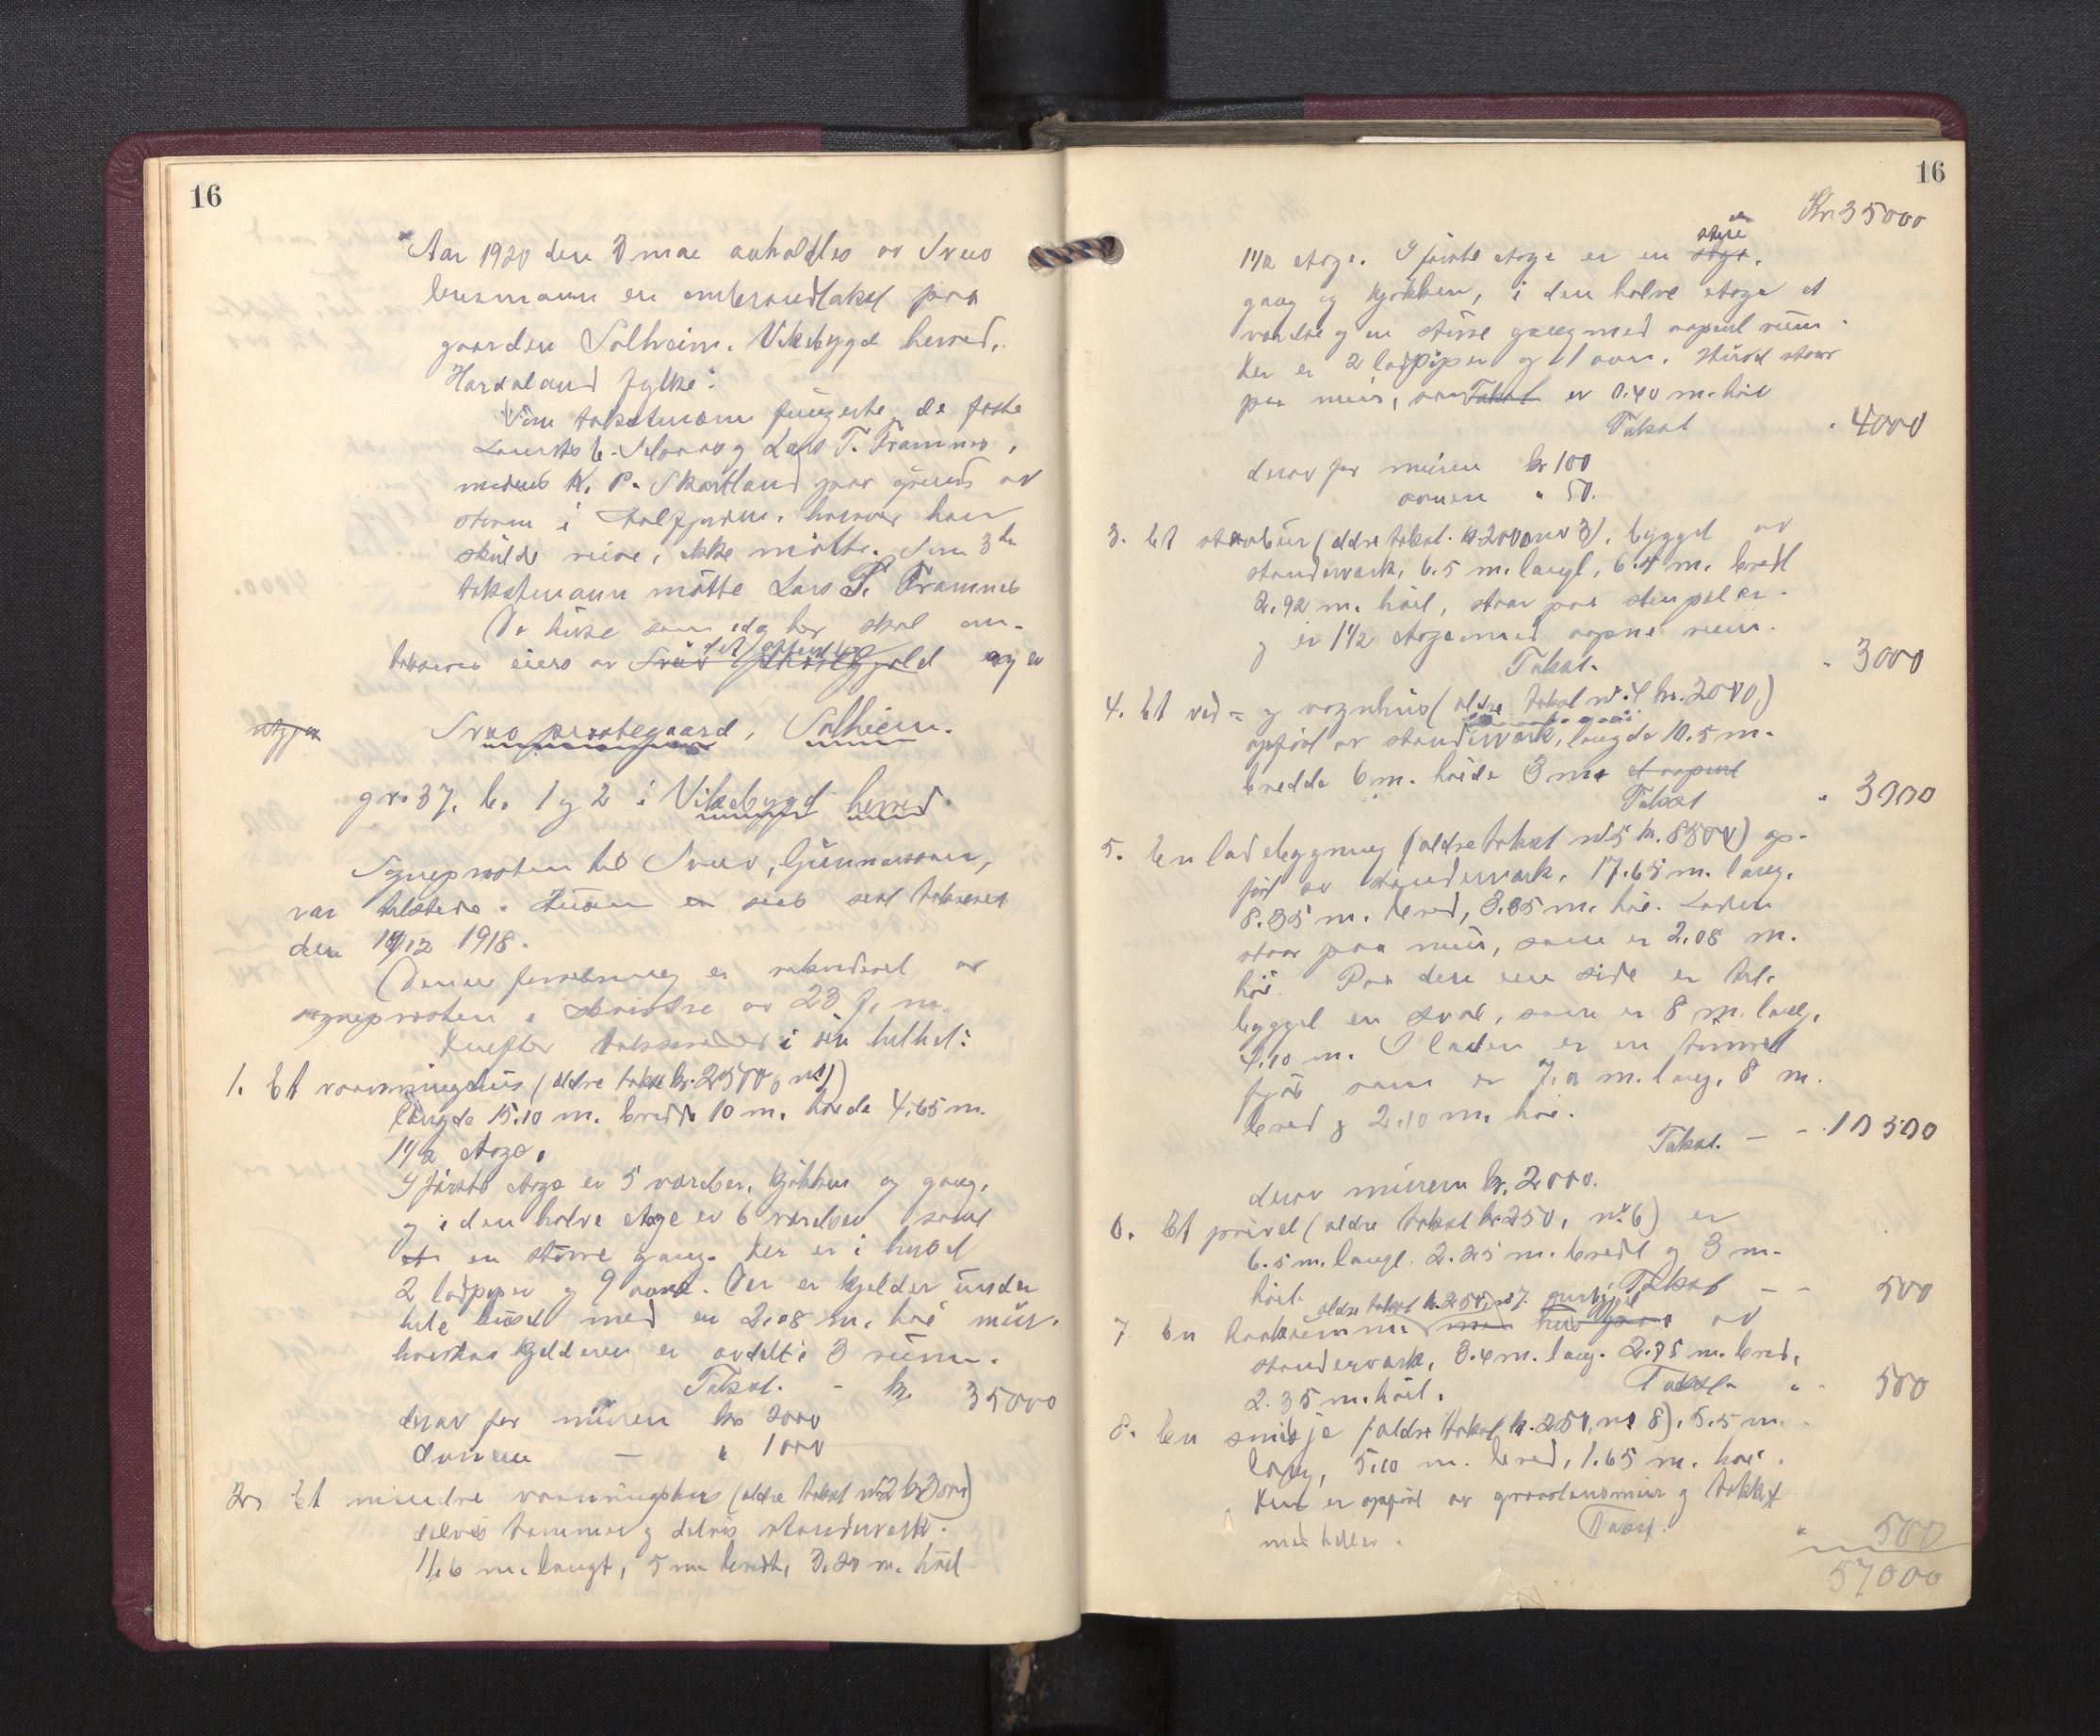 16
Aar 1920 den 3 mai avholdtes av Sveio
lensmann en ombrandtakst paa
gaarden Solheim, Vikebygd herred,
Hordaland fylke.
Som takstmænn fungerte de faste
Lars T. Framnes,
medens K. P. Skartland paa grund av
storm i Aalfjorden, hvorover han
skulde reise, ikke møtte. Som 3de
takstmann møtte Lars T. Framnes
De huse som idag her skal om-
takseres eies av det offentlige og er
Sveio prestegaard, Solheim.
gr. 37, b. 1 g 2 i Vikebygd herred.
Sognepresten til Sveio, Gunnarsson,
var tilstede. Husene er sist taksert
den 19/12 1918.
Denne forretning er rekvireret av
sognepresten i skrivelse av 23 f. m.
Derefter takseredes i sin helhet:
1. Et vaaningshus (ældre takst kr. 25000, nr 1)
længde 15.10 m. bredde 10 m. høide 4.65 m.
1 1/2 etage.
I første etage er 5 værelser, kjøkken og gang,
og i den halve etage er 6 værelser samt
en større gang. Der er i huset
2 ladpiper g 9 ovne. Der er kjelder under
hele huset med en 2.08 m. høi mur.
Kjelderen er avdelt i 3 rum.
Takst. - kr. 35000
derav for muren kr 2000
ovnene — " 1000
2. Et mindre vaaningshus (ældre takst nr 2 kr 3000)
delvis tømmer g delvis standerverk.
11.6 m. langt, 5 m bredt, 3.20 m. høit
16
Kr. 35000
1 1/2 etage. I første etage er en stue,
gang og kjøkken, i den halve etage et
værelse g en større gang med aapent rum.
Der er 2 ladpiper g 1 ovn. Huset staar
paa mur, som er 0.40 m. høi
Takst " 4000
derav for muren kr 100
ovnen " 50.
3. Et stabur (ældre takst kr 2000 nr 3), bygget av
standerverk, 6.5 m. langt, 6.4 m. bredt
2.92 m. høit, staar paa stenpeler
g er 1 1/2 etage med aapne rum.
Takst. " 3000
4. Et ved- g vognhus (ældre takst nr. 4 kr. 2000)
opført av standerverk, længde 10.5 m.
bredde 6 m. høide 3 m. et aapent
Takst " 3000
5. En ladebygning (ældre takst nr 5 kr. 8500) op-
ført av standerverk, 17.65 m. lang,
8.35 m. bred, 3.35 m. høi. Laden
staar paa mur, som er 2.08 m.
høi. Paa den ene side er til-
bygget en sval, som er 8 m. lang,
4.10 m. I laden er en tømret
fjøs som er 7.0 m. lang, 8 m.
bred g 2.10 m. høi.
Takst. — - " 10500
derav muren kr. 2000.
6. Et privet (ældre takst kr 250, nr 6) er
6.5 m. langt. 2.25 m. bredt g 3 m.
høit. Takst — - 500
ældre takst kr. 250, nr 7.
7. En av
standerverk, 3.4 m. lang. 2.75 m. bred,
2.35 m. høit. Takst " 500
8. En smidje (ældre takst kr. 250, nr 8), 5.5 m.
lang, 5.10 m. bred, 1.65 m. høi.
Den er opført av graastensmur g tækket
med heller. Takst. " 500
57000